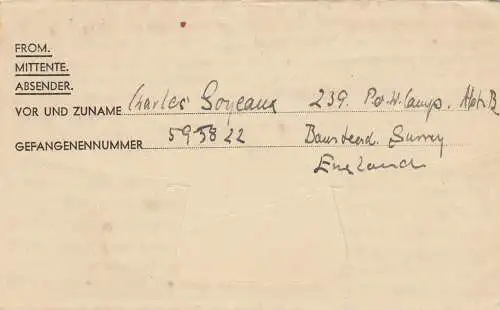 FROM.
MITTENTE.
ABSENDER.
VOR UND ZUNAME Charles Soyeaux 239. P.o.W. Camp.
GEFANGENENNUMMER 595822 Banstead. Surrey
England